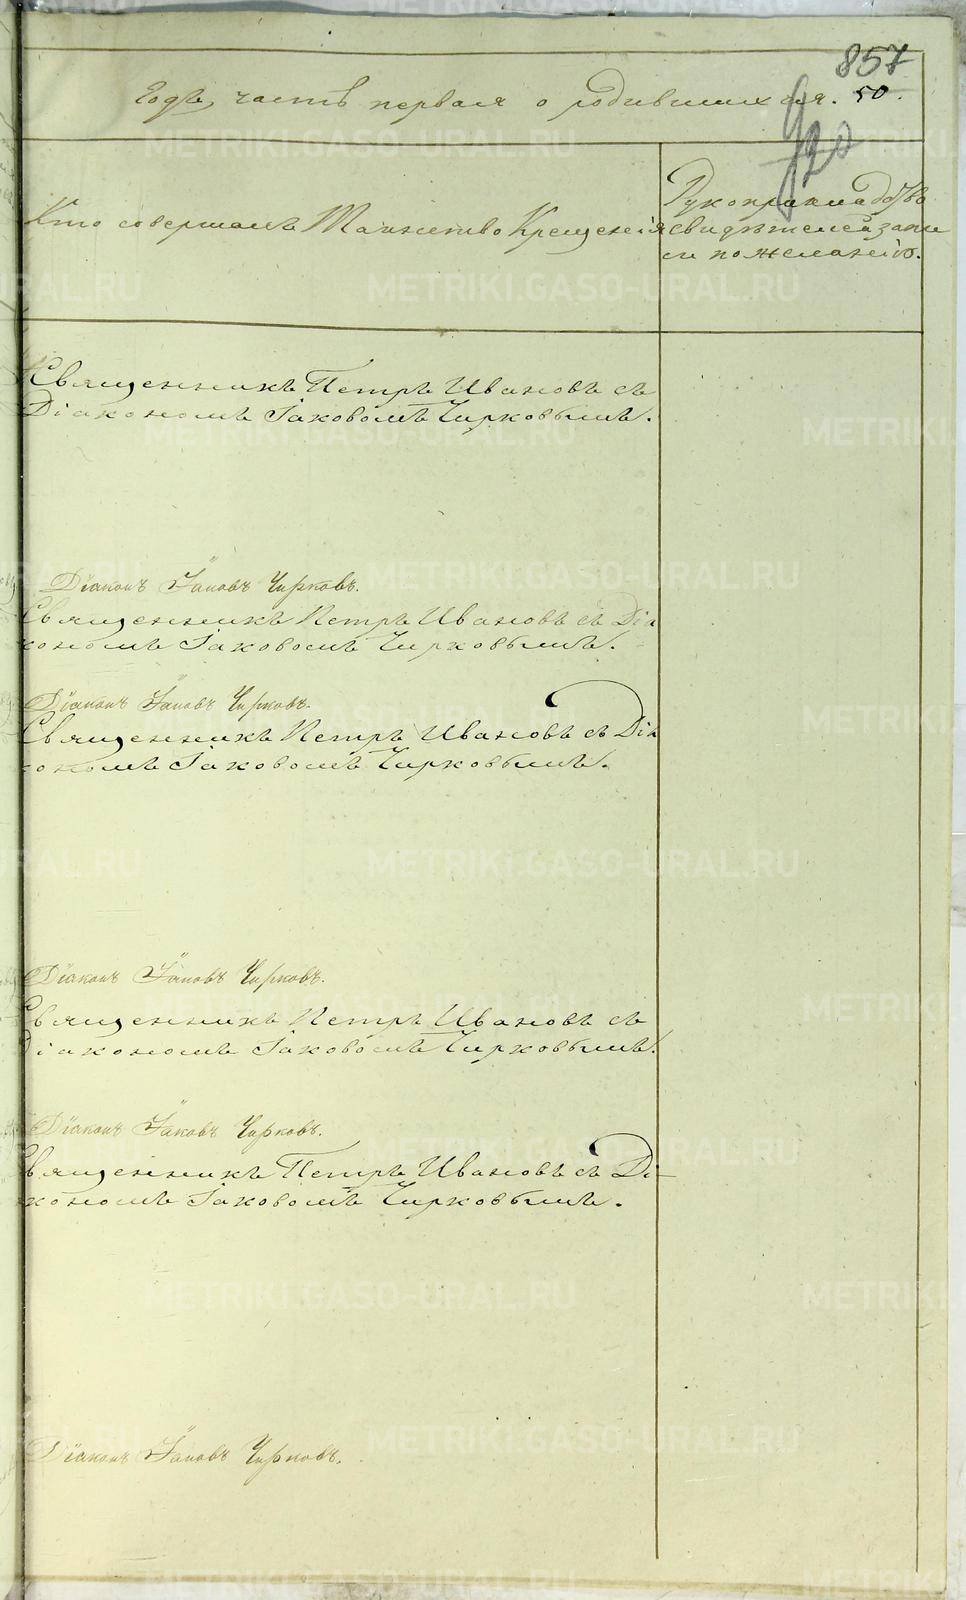 857
Годъ, часть первая о родившихся. 50.
920
Кто совершалъ Таинство Крещенія
Рукоприкладство
свидѣтелей запи
си по желанію.
Священникъ Петръ Ивановъ съ
Діакономъ Іаковомъ Чирковымъ.
Діаконъ Іаковъ Чирковъ.
Священникъ Петръ Ивановъ съ Діа
кономъ Іаковомъ Чирковымъ.
Діаконъ Іаковъ Чирковъ.
Священникъ Петръ Ивановъ съ Діа
кономъ Іаковомъ Чирковымъ.
Діаконъ Іаковъ Чирковъ.
Священникъ Петръ Ивановъ съ
Діакономъ Іаковомъ Чирковымъ.
Діаконъ Іаковъ Чирковъ.
Священникъ Петръ Ивановъ съ Ді
кономъ Іаковомъ Чирковымъ.
Діаконъ Іаковъ Чирковъ.
METRIKI.GASO-URAL.RU